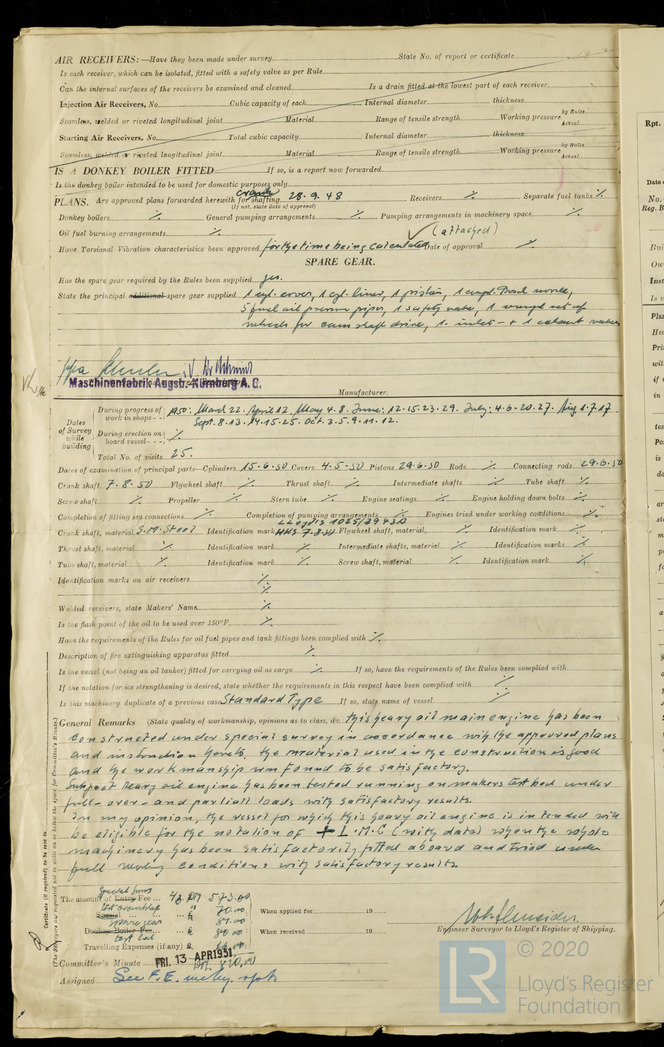 AIR RECEIVERS:—Have they been made under survey State No. of report or certificate
Is each receiver, which can be isolated, fitted with a safety valve as per Rule
Can the internal surfaces of the receivers be examined and cleaned Is a drain fitted at the lowest part of each receiver
Injection Air Receivers, No. Cubic capacity of each Internal diameter thickness
Seamless, welded or riveted longitudinal joint Material Range of tensile strength Working pressure by Rules Actual
Starting Air Receivers, No. Total cubic capacity Internal diameter thickness
Seamless, welded or riveted longitudinal joint Material Range of tensile strength Working pressure by Rules Actual
IS A DONKEY BOILER FITTED If so, is a report now forwarded
Is the donkey boiler intended to be used for domestic purposes only
PLANS. Are approved plans forwarded herewith for shafting 28.9.48 Receivers % Separate fuel tanks %
(If not, state date of approval)
Donkey boilers % General pumping arrangements % Pumping arrangements in machinery space %
Oil fuel burning arrangements % (attached)
Have Torsional Vibration characteristics been approved for the time being calculated Date of approval %
SPARE GEAR.
Has the spare gear required by the Rules been supplied yes.
State the principal additional spare gear supplied 1 cyl. cover, 1 cyl. liner, 1 piston,
5 fuel oil pressure pipes, 1 safety valve, 1
wheels for cam shaft drive, 1 inlet- + 1 exhaust valve
Maschinenfabrik Augsb.-Nürnberg A.G.
Manufacturer.
Dates of Survey while building
During progress of work in shops - - March 22. April 12. May 4.8. June: 12.15.23.29. July: 4.6.20.27. Aug 1.7.17
Sept. 8.13.14.15.25. Oct. 3.5.9.11.12.
During erection on board vessel - - - %
Total No. of visits 25.
Dates of examination of principal parts—Cylinders 15-6-50 Covers 4-5-50 Pistons 29-6-50 Rods % Connecting rods 29-6-50
Crank shaft 7-8-50 Flywheel shaft % Thrust shaft % Intermediate shafts % Tube shaft %
Screw shaft % Propeller % Stern tube % Engine seatings % Engine holding down bolts %
Completion of fitting sea connections % Completion of pumping arrangements % Engines tried under working conditions %
LLOYDS
Crank shaft, material S.M. Steel Identification mark Flywheel shaft, material, % Identification mark %
Thrust shaft, material % Identification mark % Intermediate shafts, material % Identification marks %
Tube shaft, material % Identification mark % Screw shaft, material % Identification mark %
Identification marks on air receivers %
%
Welded receivers, state Makers' Name %
Is the flash point of the oil to be used over 150°F. %
Have the requirements of the Rules for oil fuel pipes and tank fittings been complied with %
Description of fire extinguishing apparatus fitted %
Is the vessel (not being an oil tanker) fitted for carrying oil as cargo % If so, have the requirements of the Rules been complied with %
If the notation for ice strengthening is desired, state whether the requirements in this respect have been complied with %
Is this machinery duplicate of a previous case Standard Type If so, state name of vessel %
General Remarks (State quality of workmanship, opinions as to class, &c. This heavy oil main engine has been
constructed under special survey in accordance with the approved plans
and instruction thereto. The material used in the construction is good
and the workmanship was found to be satisfactory.
Subject heavy oil engine has been tested running on makers test bed under
full- over- and partiall loads with satisfactory results.
In my opinion, the vessel for which this heavy oil engine is intended will
be eligible for the notation of + L.M.C (with date) when the whole
machinery has been satisfactorily fitted aboard and tried under
full working conditions with satisfactory results.
The amount of Entry Fee ... DM 573.00
Special ... 70.00 When applied for 19
spare gear
Donkey Boiler Fee ...
Travelling Expenses (if any) When received 19
Engineer Surveyor to Lloyd's Register of Shipping.
Committee's Minute FRI. 13 APR 1951
Assigned See F.E. mchy. rpt.
© 2020
LR
Lloyd's Register
Foundation